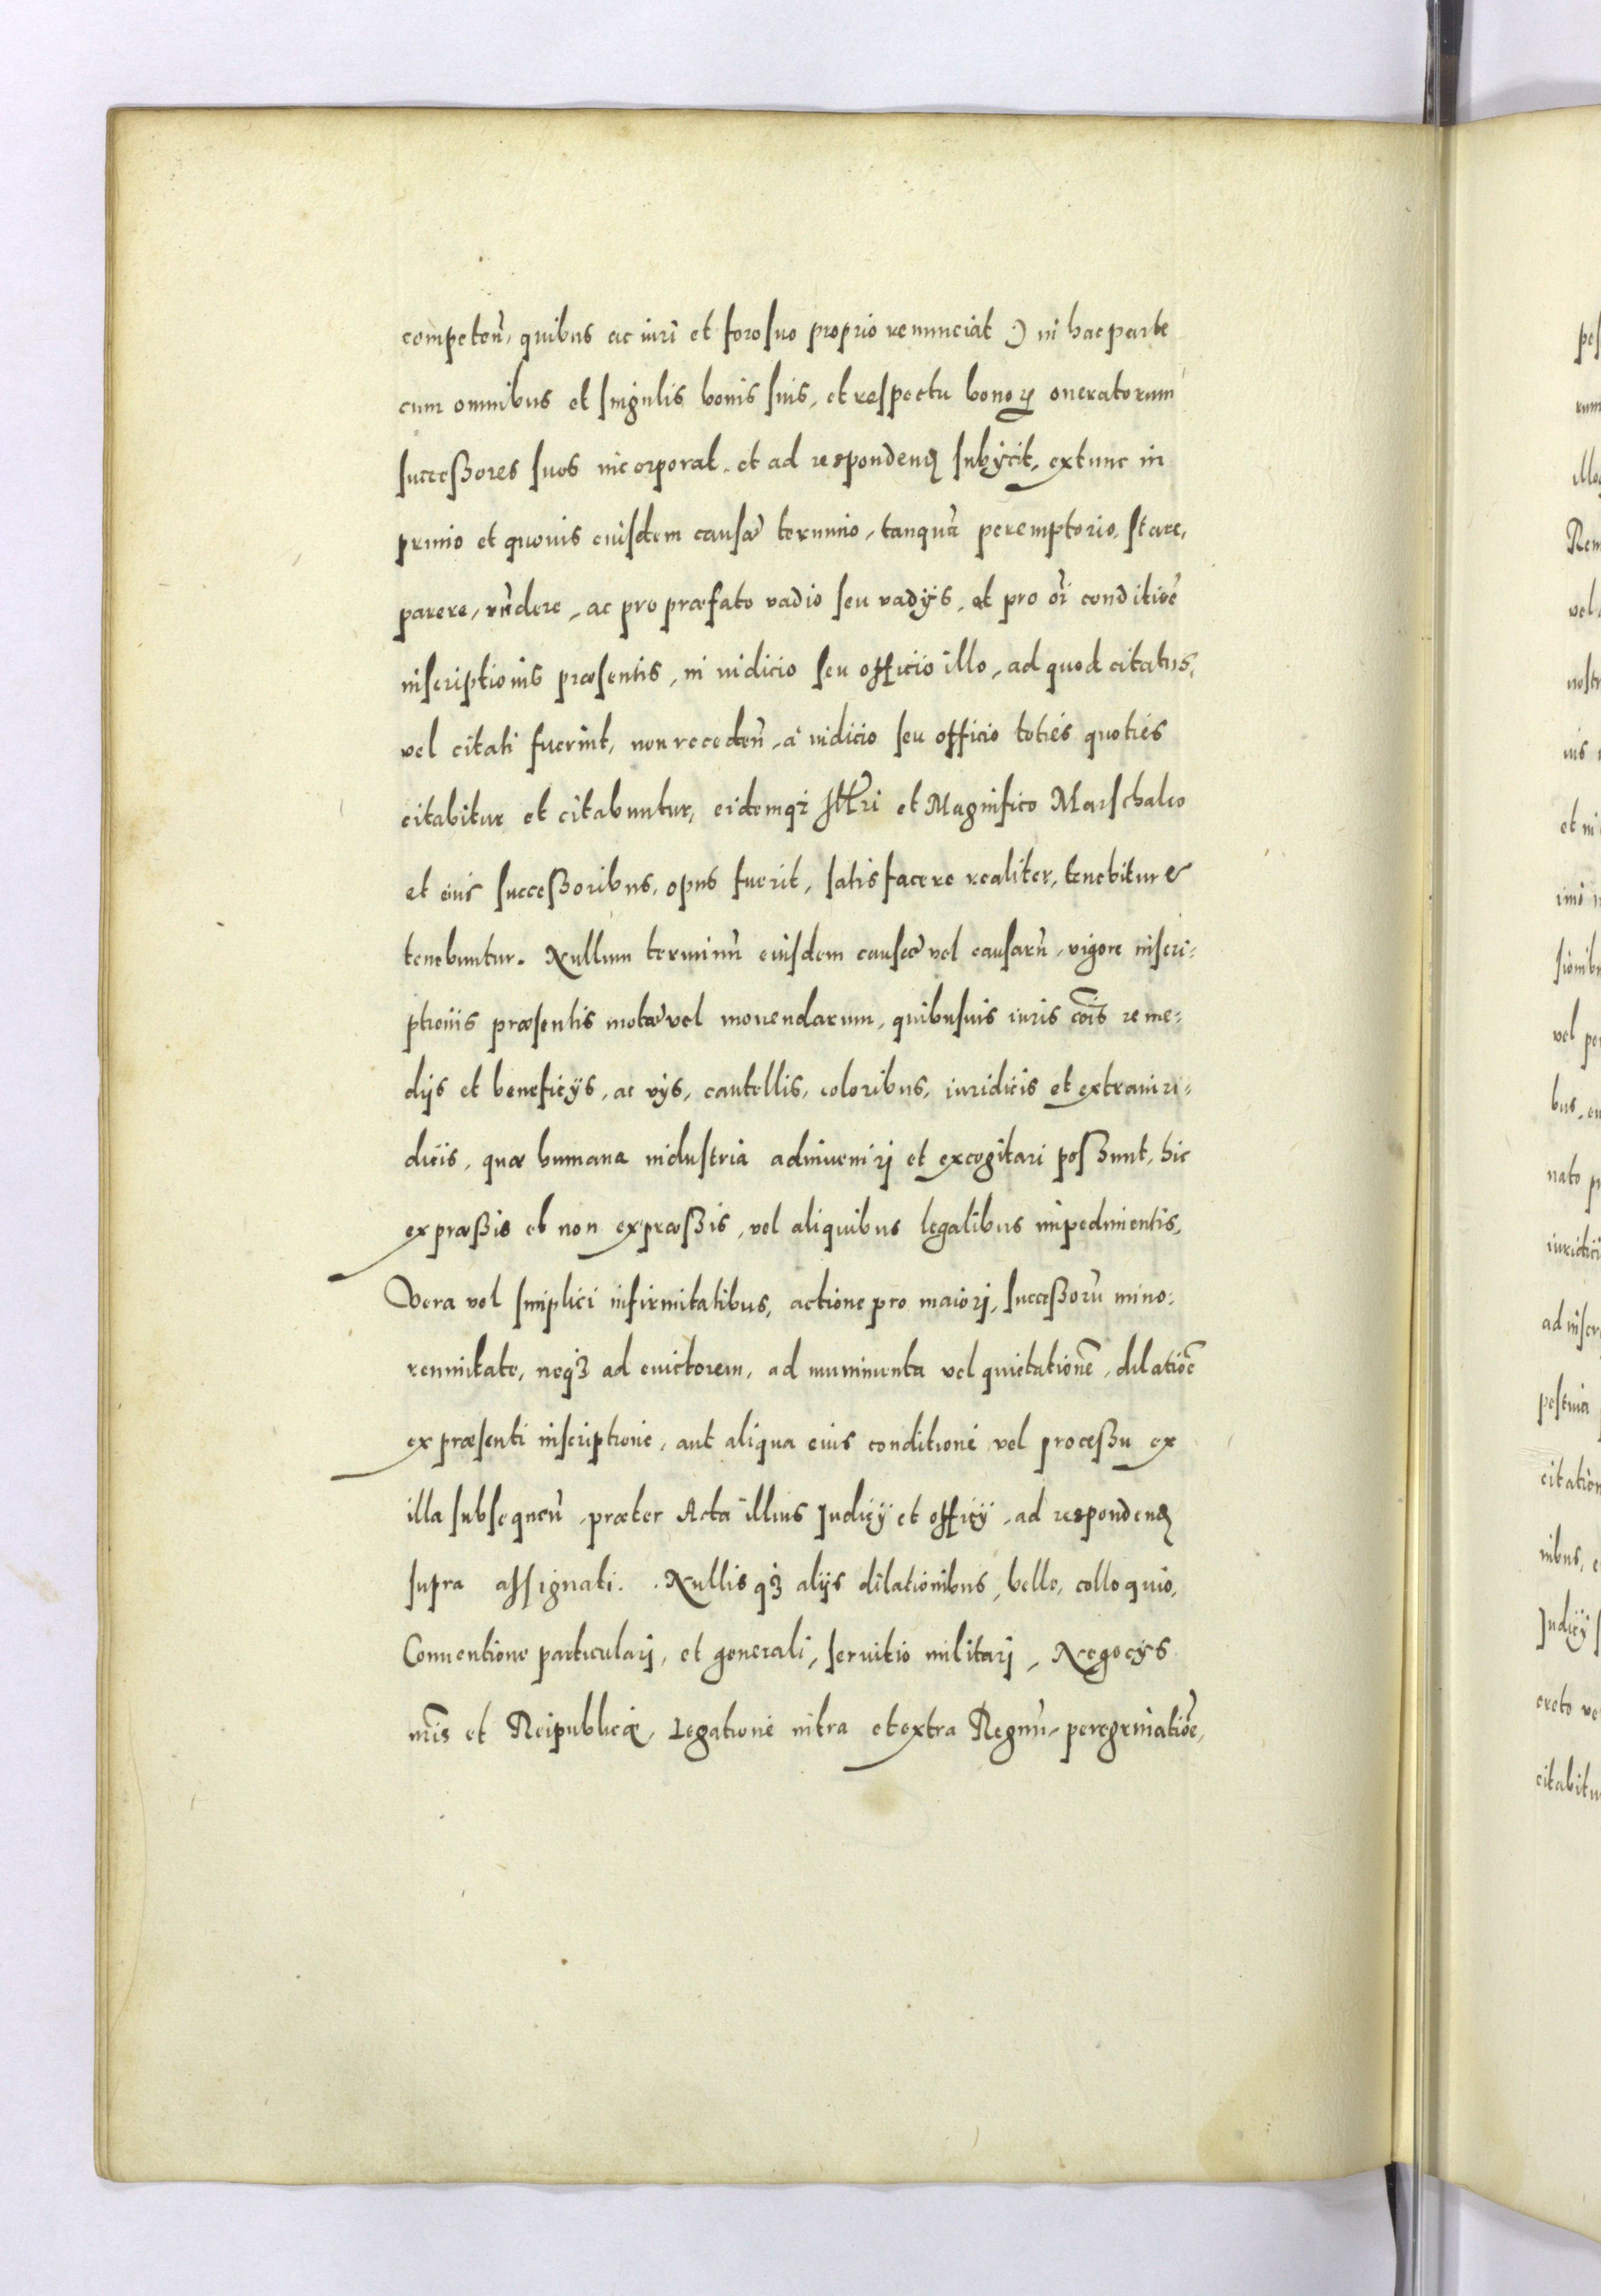 competen̄, quibus ac iuri et foro suo proprio renunciat :) in hac parte
cum omnibus et singulis bonis suis, et respectu bonoꝝ oneratorum
successores suos incorporat, et ad respondenꝺ subÿcit, extunc in
primo et quouis eiusdem causæ termino, tanquā peremptorio, stare,
parere, rn̄dere, ac pro præfato vadio seu vadÿs, et pro oī conditiōe
inscriptionis præsentis, in iudicio seu officio illo, ad quod citatus,
vel citati fuerint, non receden̄, à iudicio seu officio toties quoties
citabitur et citabuntur, eidemqꝫ Illri et Magnifico Marschalco
et eius successoribus, opus fuerit, satisfacere realiter, tenebitur &
tenebuntur. Nullum terminū eiusdem causæ vel causarū, vigore inscri:
ptionis præsentis motæ vel mouendarum, quibusuis iuris cōis reme:
dijs et beneficÿs, ac vÿs, cautellis, coloribus, iuridicis et extraiuri:
dicis, quæ humana industria adinueniri et excogitari possunt, hic
expræssis et non expræssis, vel aliquibus legalibus impedimentis,
Vera vel simplici infirmitatibus, actione pro maiori, successorū mino:
rennitate, neqꝫ ad euictorem, ad munimenta vel quietationē, dilatiōe
ex præsenti inscriptione, aut aliqua eius conditione vel processu ex
illa subsequen̄, præter Acta illius Judicÿ et officÿ, ad respondenꝺ
supra assignati. Nullisqꝫ alijs dilationibus, bello, colloquio,
Conuentione particulari, et generali, seruitio militari, Negocÿs
nr̄is et Reipublicæ, Legatione intra et extra Regnū, peregrinatiōe,